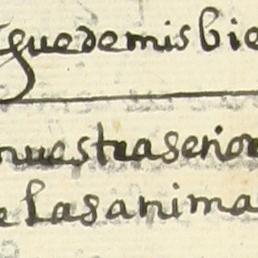 que de mis bie
nuestra señor
e las anima